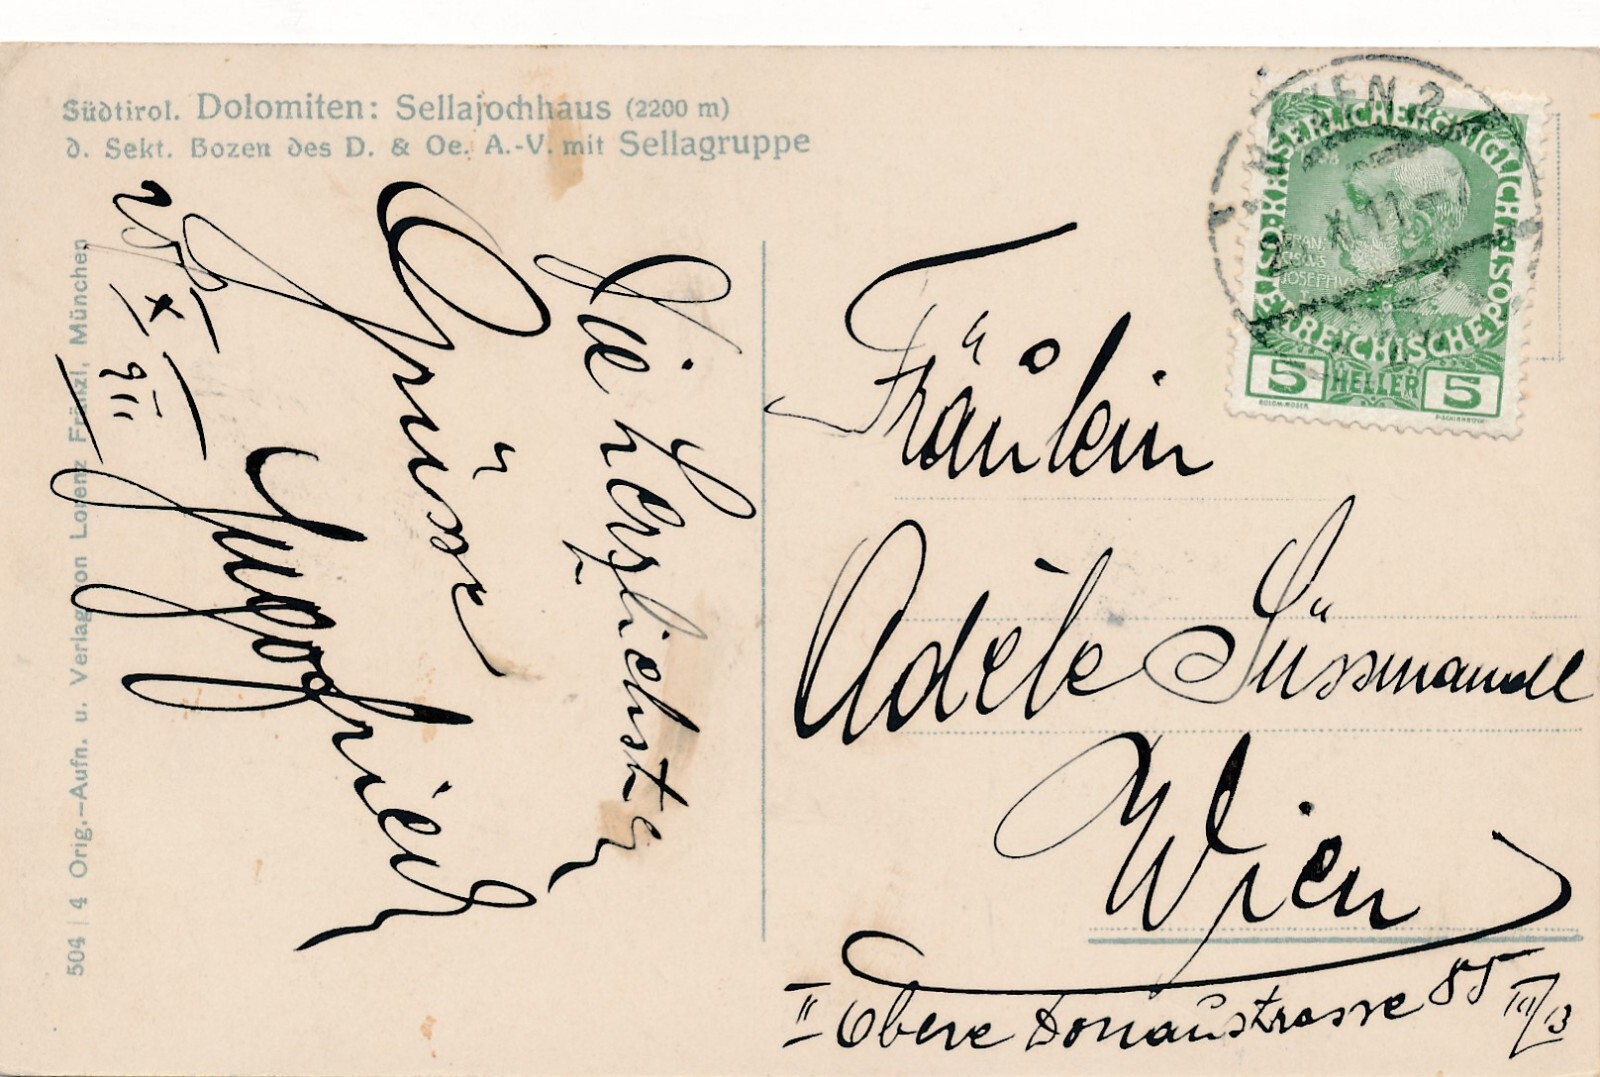 Südtirol. Dolomiten: Sellajochhaus (2200 m)
d. Sekt. Bozen des D. & Oe. A.-V. mit Sellagruppe
504 | 4 Orig.-Aufn. u. Verlag von Lorenz Fränzl, München
Die herzlichsten
Grüsse
X
911
KAISERLICHE KÖNIGLICHE
ÖSTERREICHISCHE POST
1908
FRAN
CISCVS
JOSEPH
I
5 HELLER 5
WIEN 2
X 11
Fräulein
Adèle Süssmandl
Wien
II Obere Donaustrasse 85 III/13